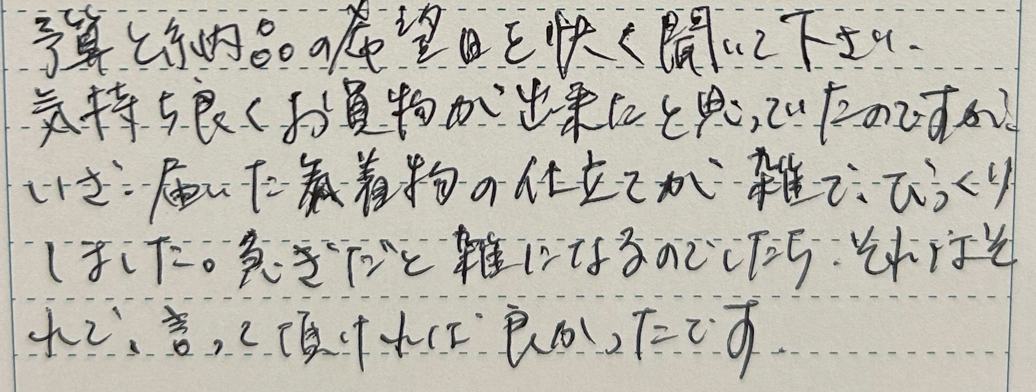 予算と納品の希望日を快く聞いて下さり、
気持ち良くお買物が出来たと思っていたのですが、
いざ、届いた着物の仕立てが雑で、びっくり
しました。急ぎだと雑になるのでしたら、それはそ
れで、言って頂ければ良かったです。